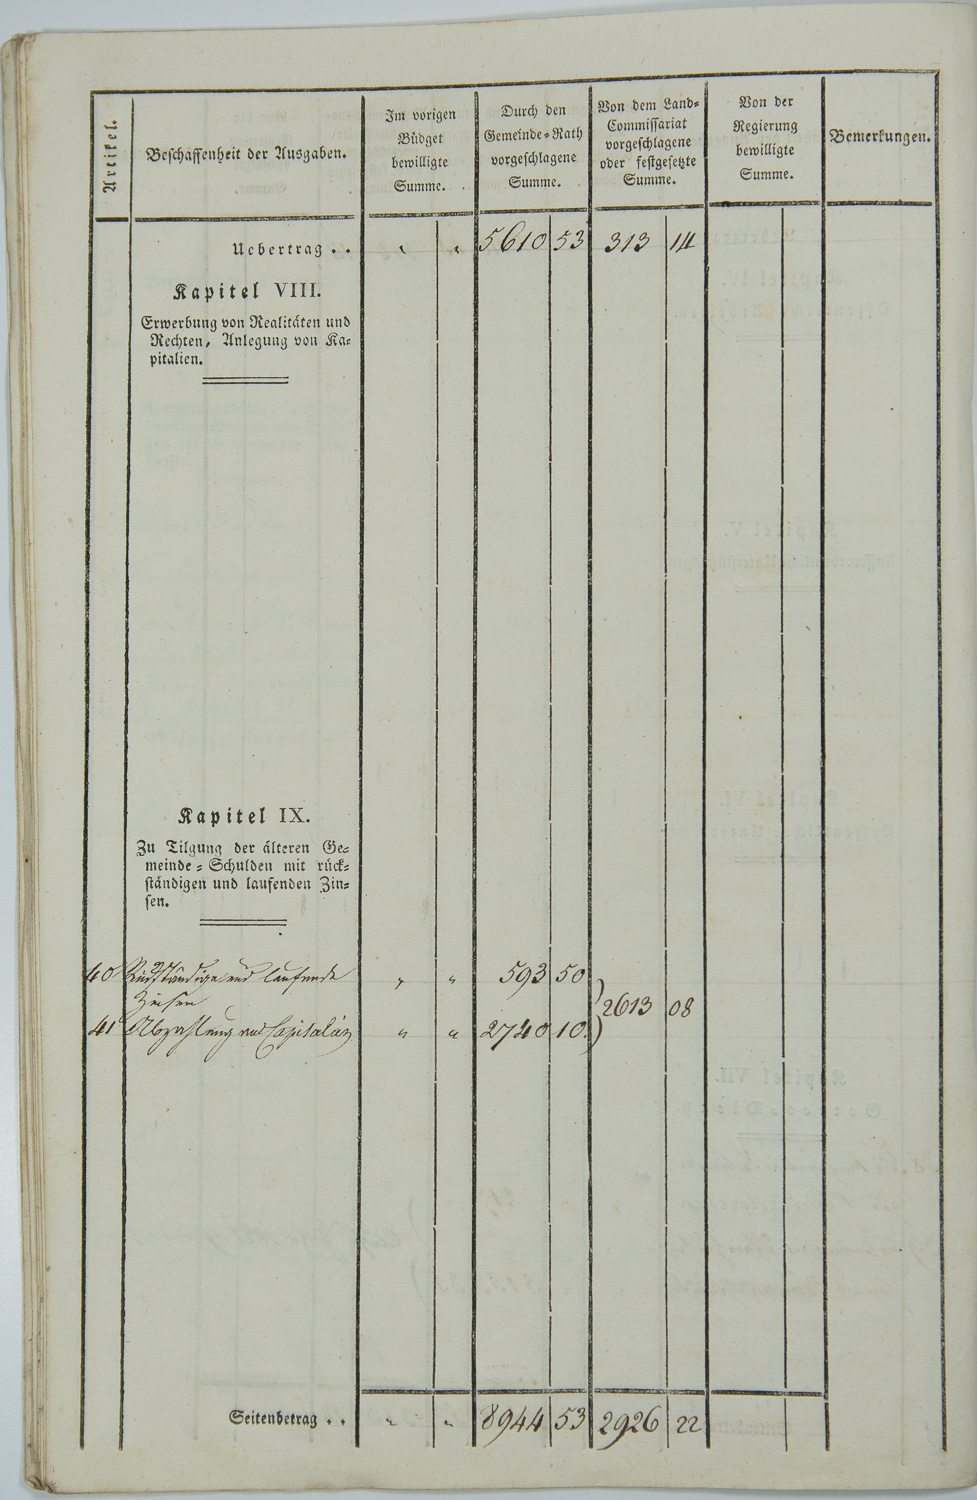 Artikel.
Beschaffenheit der Ausgaben.
Im vorigen
Büdget
bewilligte
Summe.
Durch den
Gemeinde=Rath
vorgeschlagene
Summe.
Von dem Land=
Commissariat
vorgeschlagene
oder festgesetzte
Summe.
Von der
Regierung
bewilligte
Summe.
Bemerkungen.
Uebertrag . . " " 5610 53 313 14
Kapitel VIII.
Erwerbung von Realitäten und
Rechten, Anlegung von Ka=
pitalien.
Kapitel IX.
Zu Tilgung der älteren Ge=
meinde=Schulden mit rück=
ständigen und laufenden Zin=
sen.
40 Rückständige und laufende " " 593 50
Zinsen 2613 08
41 Abzahlung von Capitalien " " 2740 10.
Seitenbetrag . . " " 8944 53 2926 22